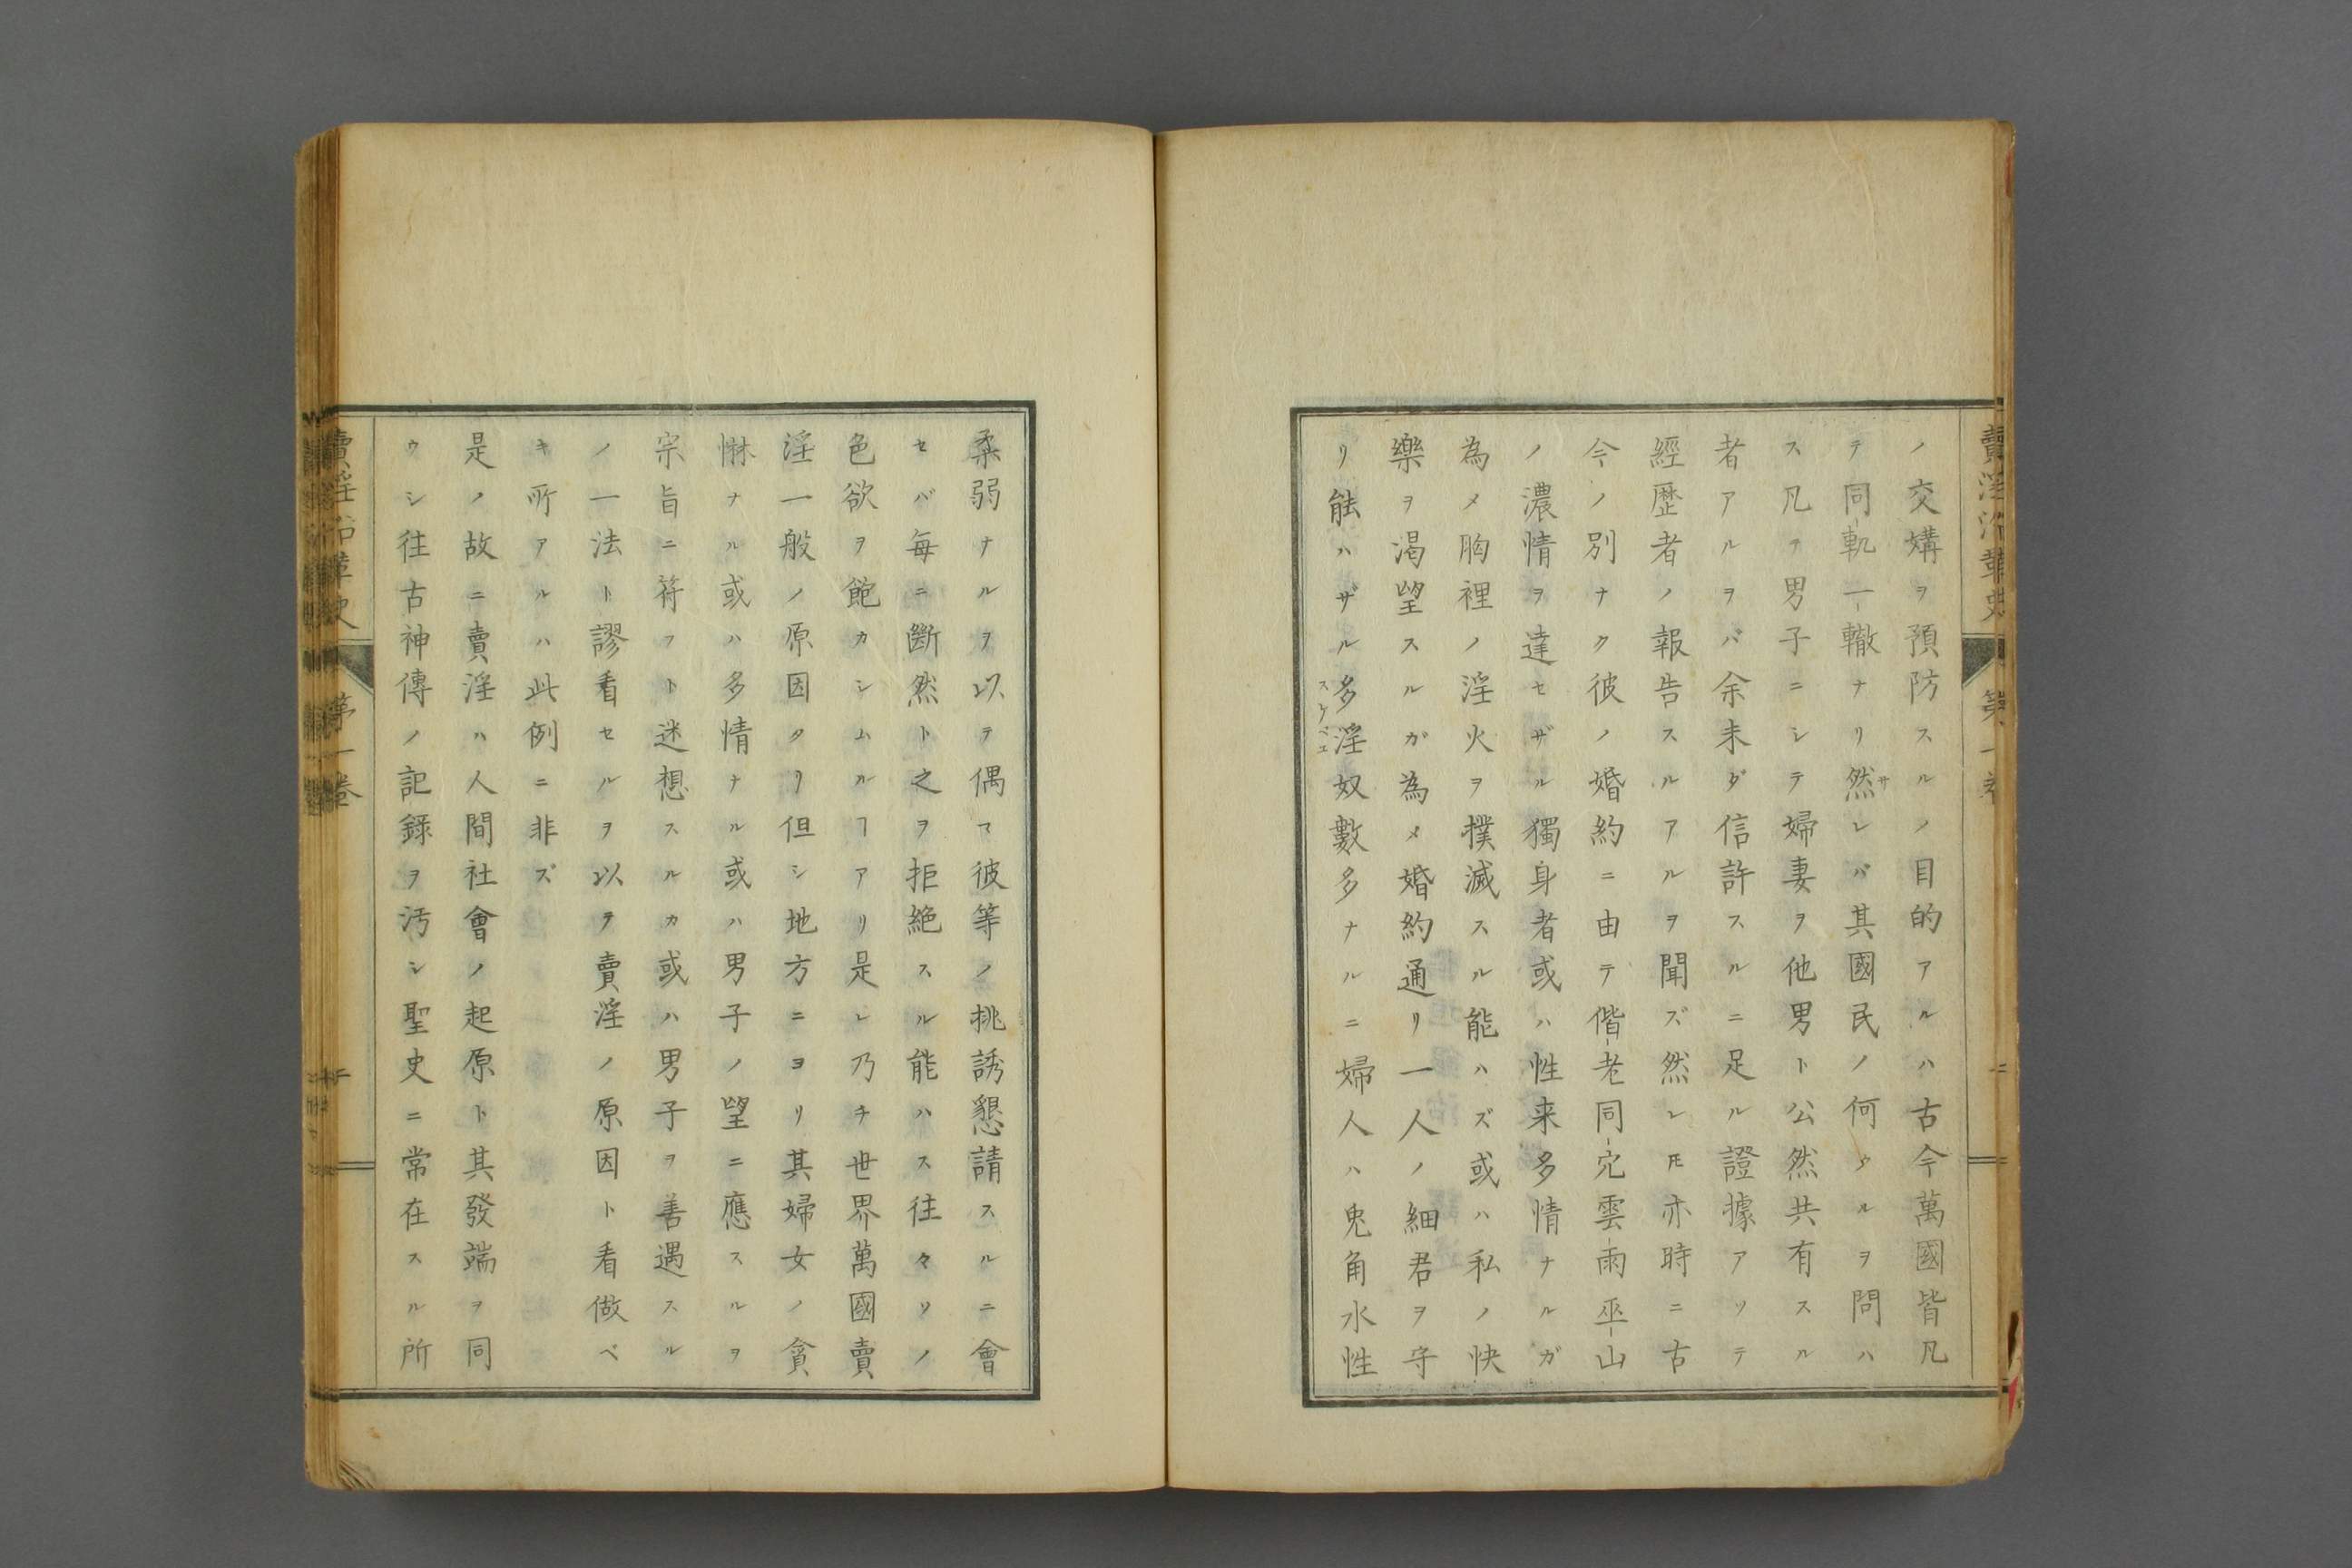 賣淫沿革史 第一卷 二
ノ交媾ヲ預防スルノ目的アルハ古今萬國皆凡
テ同軌一轍ナリ然レバ其國民ノ何タルヲ問ハ
サ
ス凡テ男子ニシテ婦妻ヲ他男ト公然共有スル
者アルヲバ余未ダ信許スルニ足ル證據アリテ
經歴者ノ報告スルアルヲ聞ズ然レ𪜈亦時ニ古
今ノ別ナク彼ノ婚約ニ由テ偕老同穴雲雨巫山
ノ濃情ヲ達セザル獨身者或ハ性来多情ナルガ
為メ胸裡ノ淫火ヲ撲滅スル能ハズ或ハ私ノ快
樂ヲ渇望スルガ為メ婚約通リ一人ノ細君ヲ守
リ能ハザル多淫奴數多ナルニ婦人ハ兎角水性
スケベエ
柔弱ナルヲ以テ偶マ彼等ノ挑誘懇請スルニ會
セバ毎ニ斷然ト之ヲ拒絶スル能ハス往々ソノ
色欲ヲ飽カシムルヿアリ是レ乃チ世界萬國賣
淫一般ノ原因タリ但シ地方ニヨリ其婦女ノ貪
惏ナル或ハ多情ナル或ハ男子ノ望ニ應スルヲ
宗旨ニ符フト迷想スルカ或ハ男子ヲ善遇スル
ノ一法ト謬看セルヲ以テ賣淫ノ原因ト看做ベ
キ所アルハ此例ニ非ズ
是ノ故ニ賣淫ハ人間社會ノ起原ト其發端ヲ同
ウシ往古神傳ノ記錄ヲ汚シ聖史ニ常在スル所
賣淫沿革史 第一卷